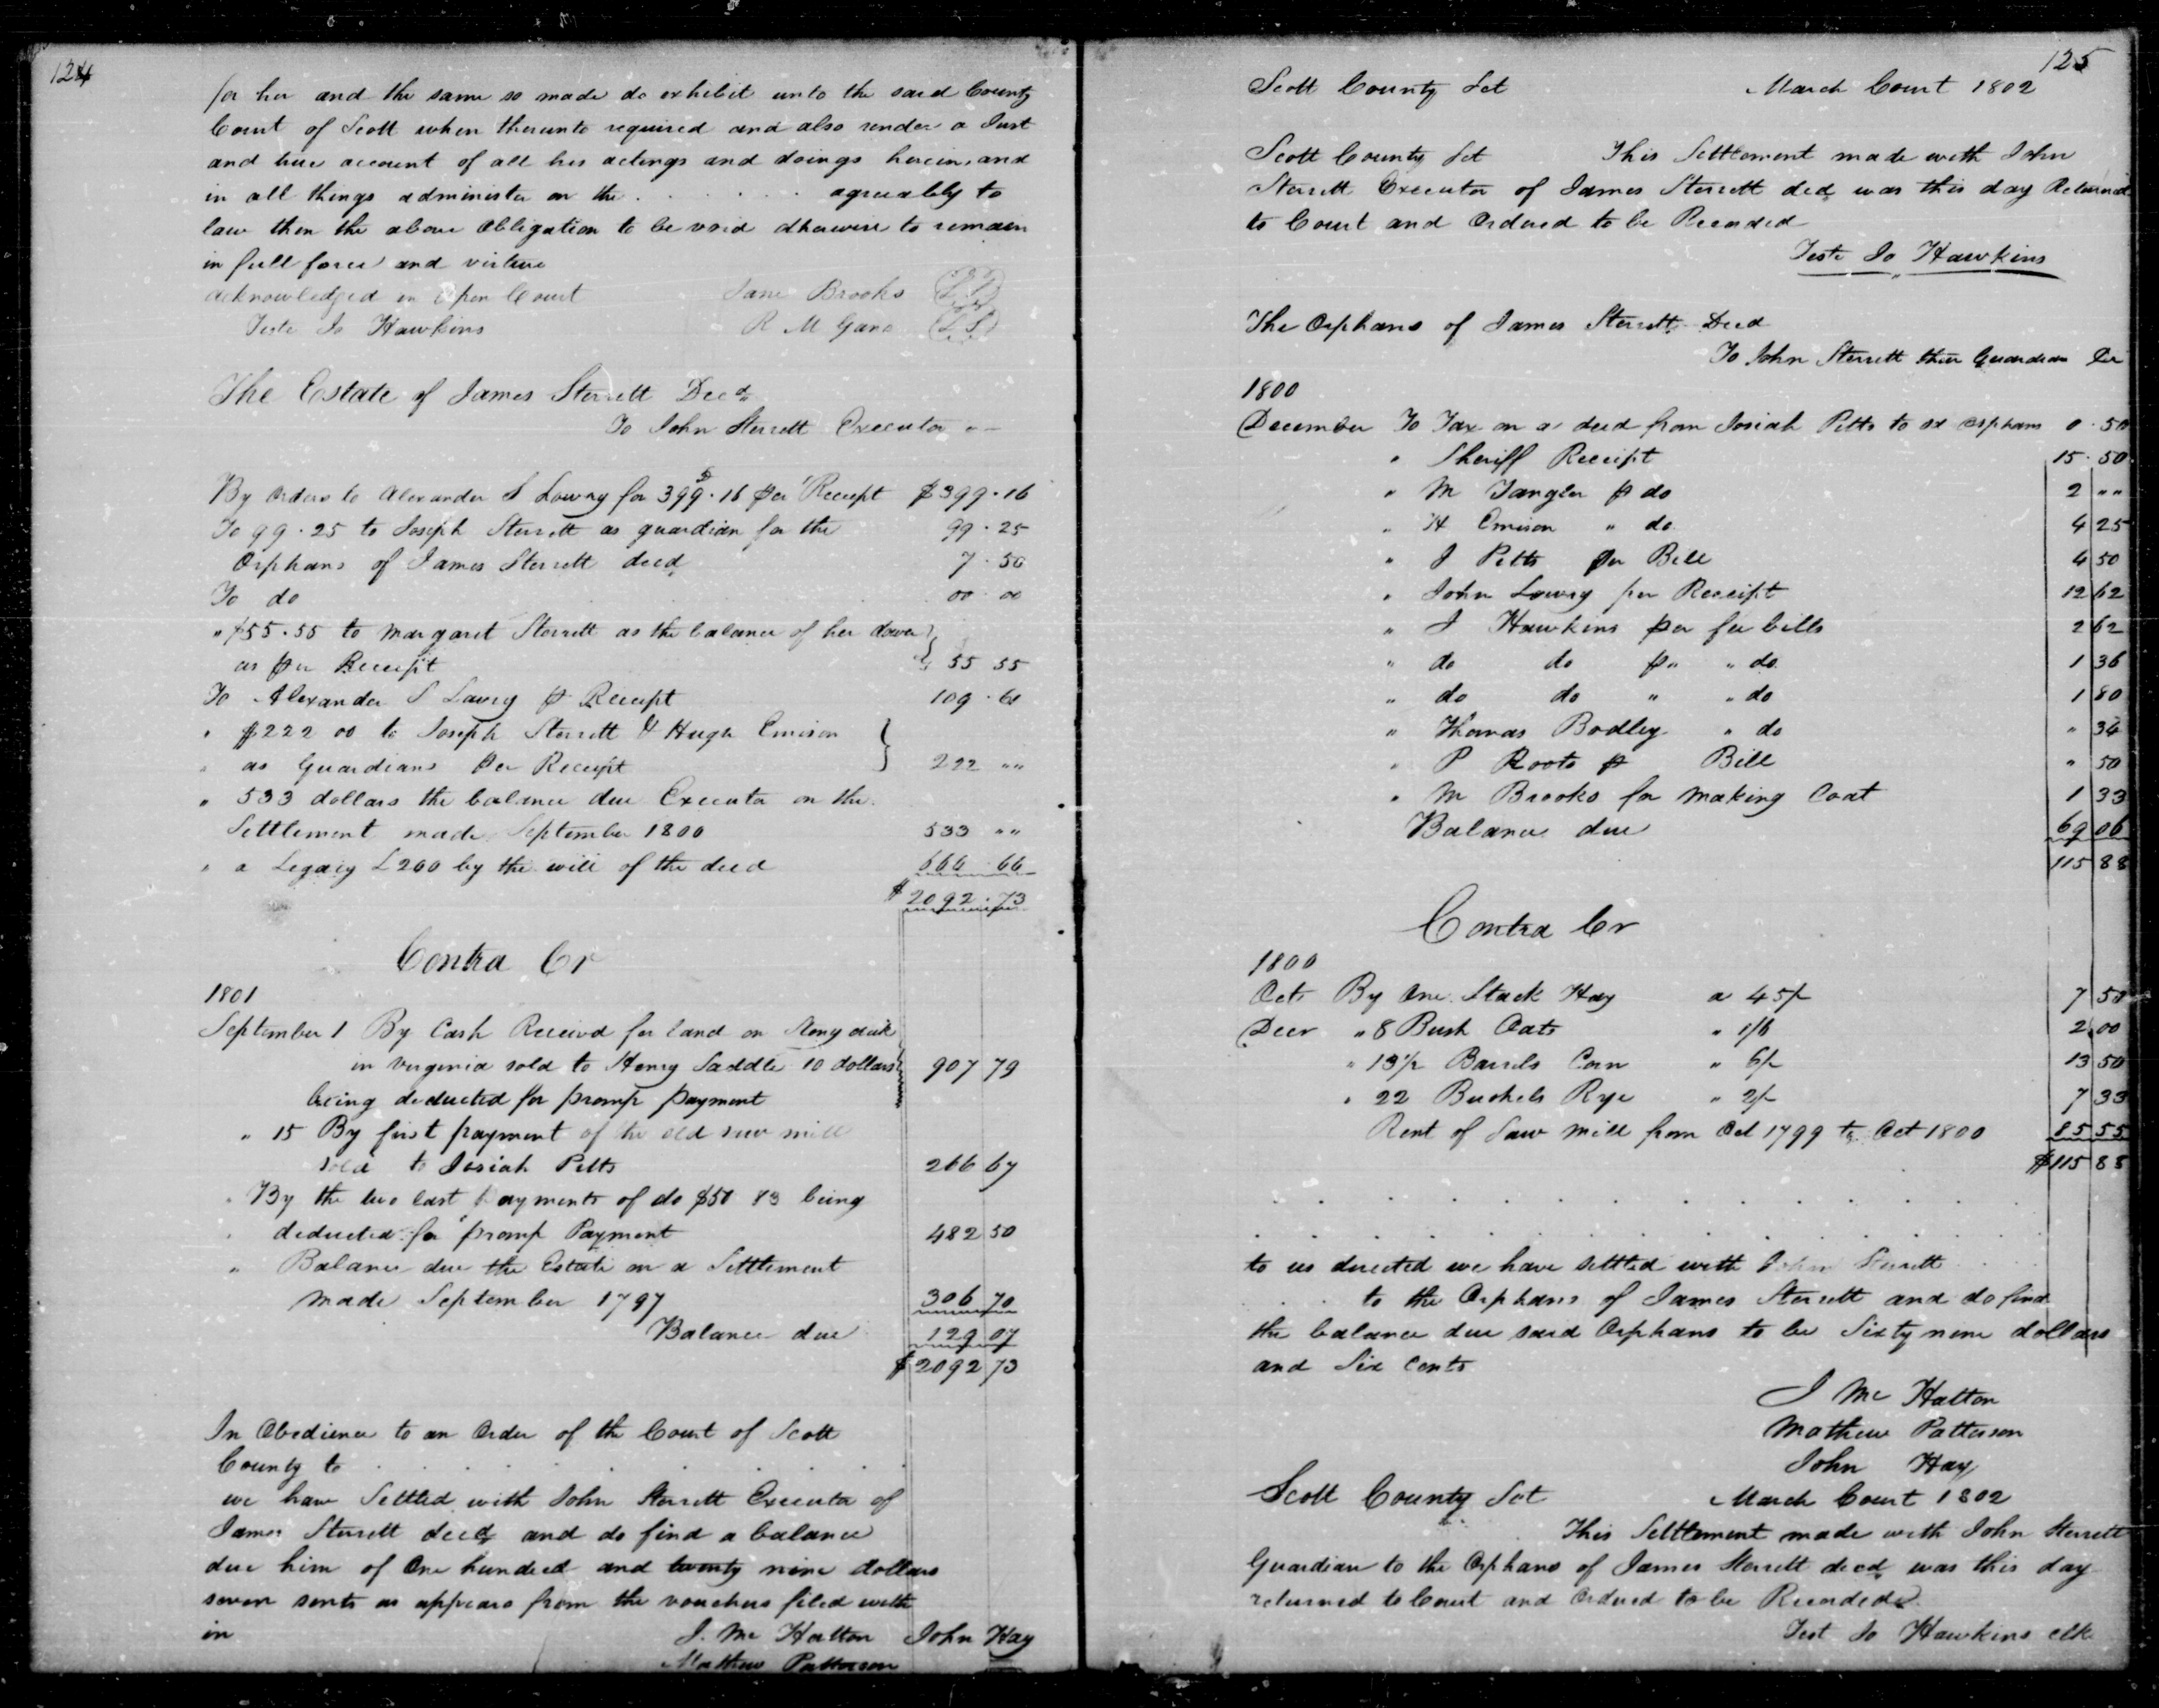 124
for her and the same so made do exhibit unto the said County
Court of Scott when therunto required and also render a Just
and true account of all his actings and doings herein, and
in all things administer on the . . . . . . agreeably to
law then the above Obligation to be void otherwise to remain
in full force and virtue
acknowledged in Open Court Jane Brooks (L S)
Teste Jo Hawkins R M Gano (L S)
The Estate of James Sterrett Decd
To John Sterrett Executor
By orders to Alexander S Lowry for 399 . 16 per Receipt $399 . 16
To 99 . 25 to Joseph Sterrett as guardian for the 99 . 25
Orphans of James Sterrett decd 7 . 50
To do 00 . 00
" $55 . 55 to Margaret Sterrett as the balance of her dower
as per Receipt 55 55
To Alexander S Lowry p Receipt 109 . 61
" $222 00 to Joseph Sterrett & Hugh Emison
" as Guardians Per Receipt 222 ""
" 533 dollars the balance due Executor on the
Settlement made September 1800 533 ""
" a Legacy £200 by the will of the decd 666 . 66
$2092 . 73
Contra Cr
1801
September 1 By Cash Received for land on Stony
in Virginia sold to Henry Saddle 10 dollars 907 79
being deducted for promp payment
" 15 By first payment of the old saw mill
sold to Josiah Pitts 266 67
" By the two last payments of do $50 83 being
" deducted for promp Payment 482 50
" Balance due the Estate on a Settlement
made September 1797 306 70
Balance due 129 07
$2092 73
In Obedience to an Order of the Court of Scott
County to . . . . . . . .
we have Settled with John Sterrett Executor of
James Sterrett decd and do find a balance
due him of One hundred and twenty nine dollars
seven sents as appears from the vouchers filed with
in J. Mc Hatton John Hay
Mathew Patterson
125
Scott County Sct March Court 1802
Scott County Sct This Settlement made with John
Sterrett Executor of James Sterrett decd was this day Returned
to Court and Ordered to be Recorded
Teste Jo Hawkins
The Orphans of James Sterrett Decd
To John Sterrett their Guardian Dr
1800
December To Tax on a deed from Josiah Pitts to sd orphans 0 . 50
" Sheriff Receipt 15 . 50
" M p do 2 ""
" H Emison " do 4 25
" J Pitts Per Bill 4 50
" John Lowry per Receipt 12 62
" J Hawkins per fee bills 2 62
" do do p " " do 1 36
" do do " " do 1 80
" Thomas Bodley " do " 34
" P Roots p Bill " 50
" M Brooks for making Coat 1 33
Balance due 69 06
115 88
Contra Cr
1800
Octr By One Stack Hay a 45/- 7 50
Decr " 8 Bush Oats " 1/6 2 00
" 13 1/2 Barrels Corn " 6/- 13 50
" 22 Bushels Rye " 2/- 7 33
Rent of Saw Mill from Oct 1799 to Oct 1800 85 55
$115 88
to us directed we have settled with John Sterrett
. . . to the Orphans of James Sterrett and do find
the balance due said Orphans to be Sixty nine dollars
and Six Cents
J Mc Hatton
Mathew Patterson
John Hay
Scott County Sct March Court 1802
This Settlement made with John Sterrett
Guardian to the Orphans of James Sterrett decd was this day
returned to Court and Ordered to be Recorded
Test Jo Hawkins clk